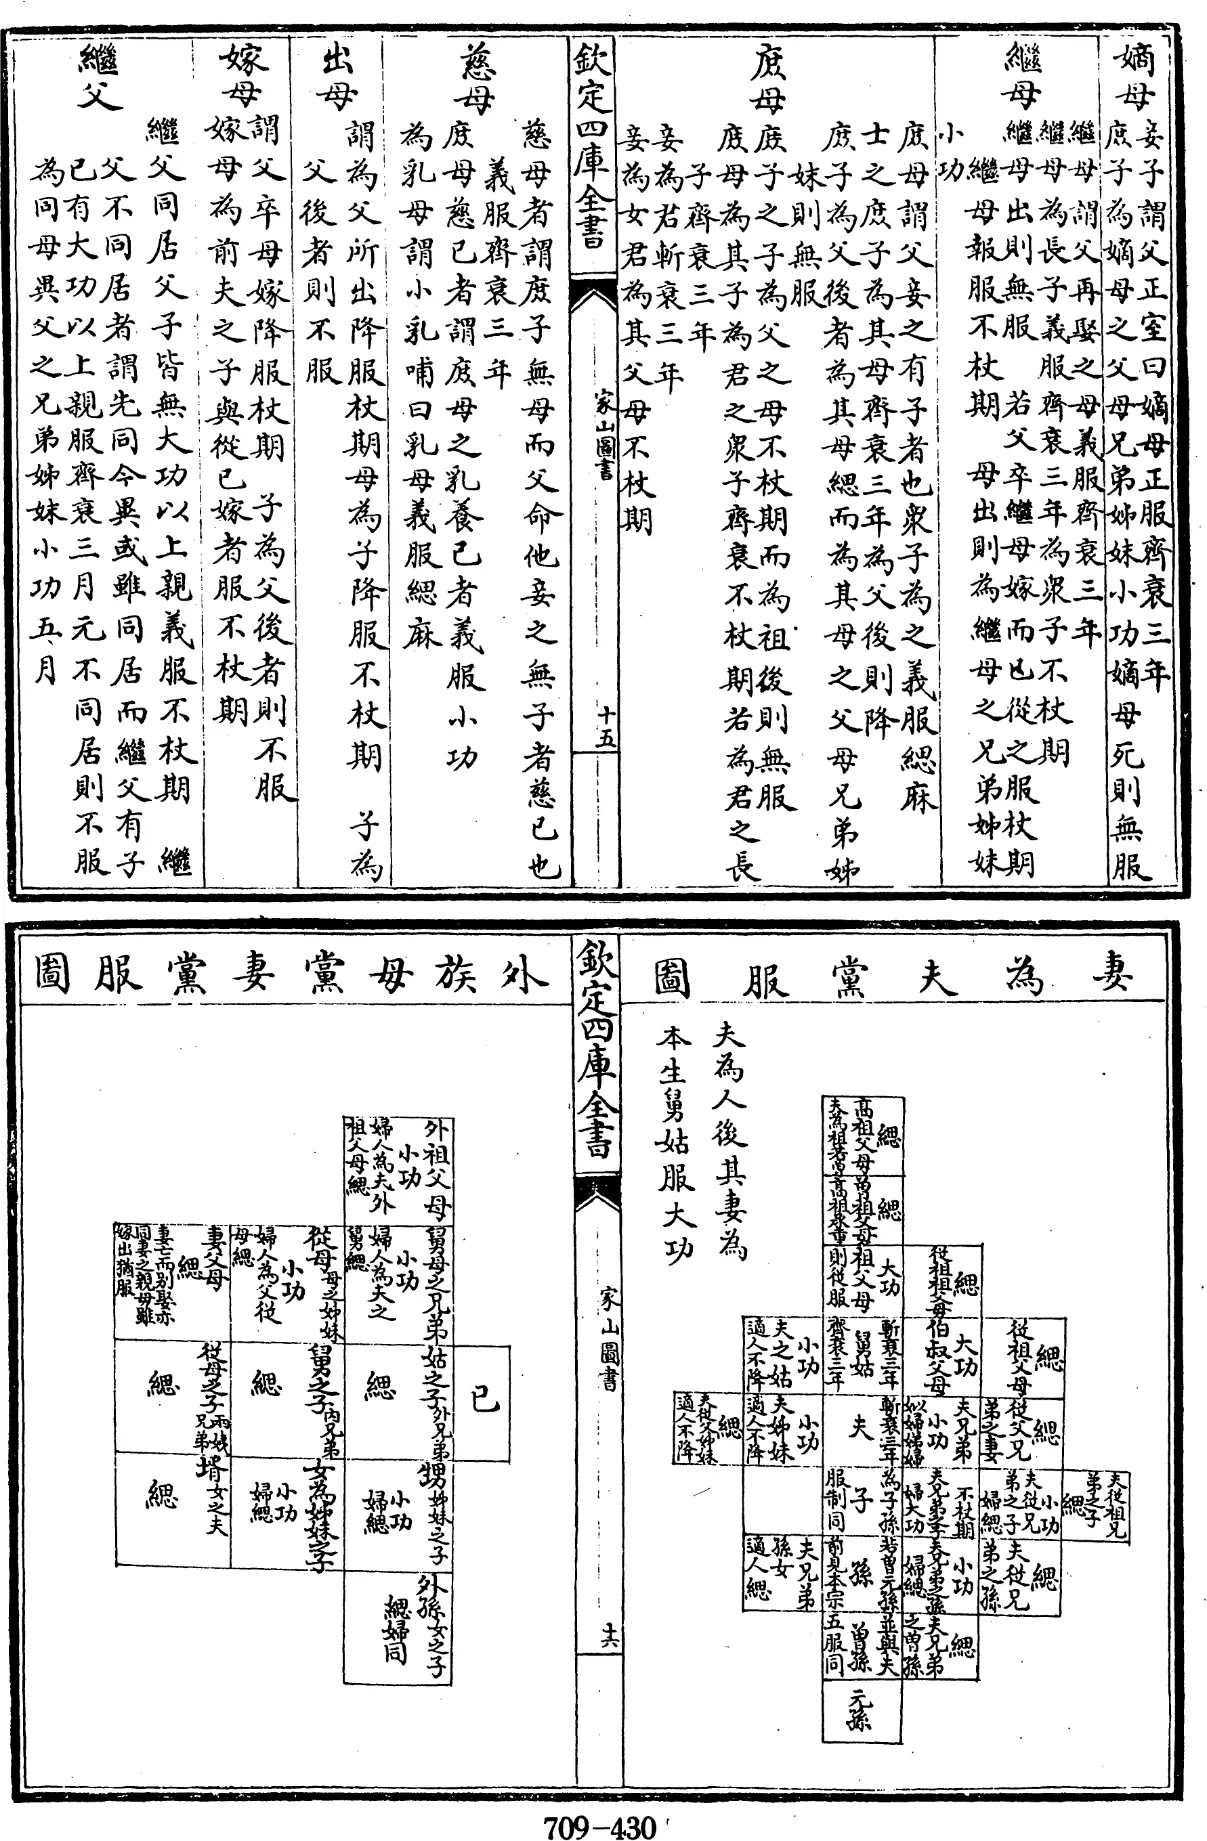 嫡母
妾子謂父正室曰嫡母正服齊衰三年
庶子為嫡母之父母兄弟姊妹小功嫡母死則無服
繼母
繼母謂父再娶之母義服齊衰三年
繼母為長子義服齊衰三年為衆子不杖期
繼母出則無服　若父卒繼母嫁而已從之服杖期
繼母報服不杖期　母出則為繼母之兄弟姊妹
小功
庶母
庶母謂父妾之有子者也衆子為之義服緦麻
士之庶子為其母齊衰三年為父後則降
庶子為父後者為其母緦而為其母之父母兄弟姊
妹則無服
庶子之子為父之母不杖期而為祖後則無服
庶母為其子為君之衆子齊衰不杖期若為君之長
子齊衰三年
妾為君斬衰三年
妾為女君為其父母不杖期
欽定四庫全書
家山圖書
十五
慈母
慈母者謂庶子無母而父命他妾之無子者慈已也
義服齊衰三年
庶母慈已者謂庶母之乳養已者義服小功
為乳母謂小乳哺曰乳母義服緦麻
出母
謂為父所出降服杖期母為子降服不杖期　子為
父後者則不服
嫁母
謂父卒母嫁降服杖期　子為父後者則不服
嫁母為前夫之子與從已嫁者服不杖期
繼父
繼父同居父子皆無大功以上親義服不杖期　繼
父不同居者謂先同今異或雖同居而繼父有子
已有大功以上親服齊衰三月元不同居則不服
為同母異父之兄弟姊妹小功五月
妻為夫黨服圖
夫為人後其妻為
本生舅姑服大功
高祖父母
緦
夫為祖若曽
曽祖父母
緦
高祖承重
祖父母
大功
則從服
從祖祖父母
緦
斬衰三年
舅姑
齊衰三年
夫之姑
小功
適人不降
伯叔父母
大功
從祖父母
緦
斬衰三年
夫
夫姊妹
小功
適人不降
夫從父姊妹
緦
適人不降
夫兄弟
小功
姒婦娣婦
從父兄
弟之妻
緦
為子孫
子
服制同
夫兄弟之子
不杖期
婦大功
夫從兄
弟之子
小功
婦緦
夫從祖兄
弟之子
緦
若曽元孫
孫
前見本宗
夫兄弟
孫女
適人緦
夫兄弟之孫
小功
婦緦
夫從兄
弟之孫
緦
並與夫
曽孫
五服同
夫兄弟
之曽孫
緦
元孫
欽定四庫全書
家山圖書
十六
外族母黨妻黨服圖
外祖父母
小功
婦人為夫外
祖父母緦
舅母之兄弟
小功
婦人為夫之
舅緦
從母母之姊妹
小功
婦人為父從
母緦
妻父母
緦
妻亡而别娶亦
同妻之親母雖
嫁出猶服
已
姑之子外兄弟
緦
舅之子内兄弟
緦
從母之子兩姨兄弟
緦
甥姊妹之子
小功
婦緦
女為姊妹之子
小功
婦緦
壻女之夫
緦
外孫女之子
緦婦同
709-430